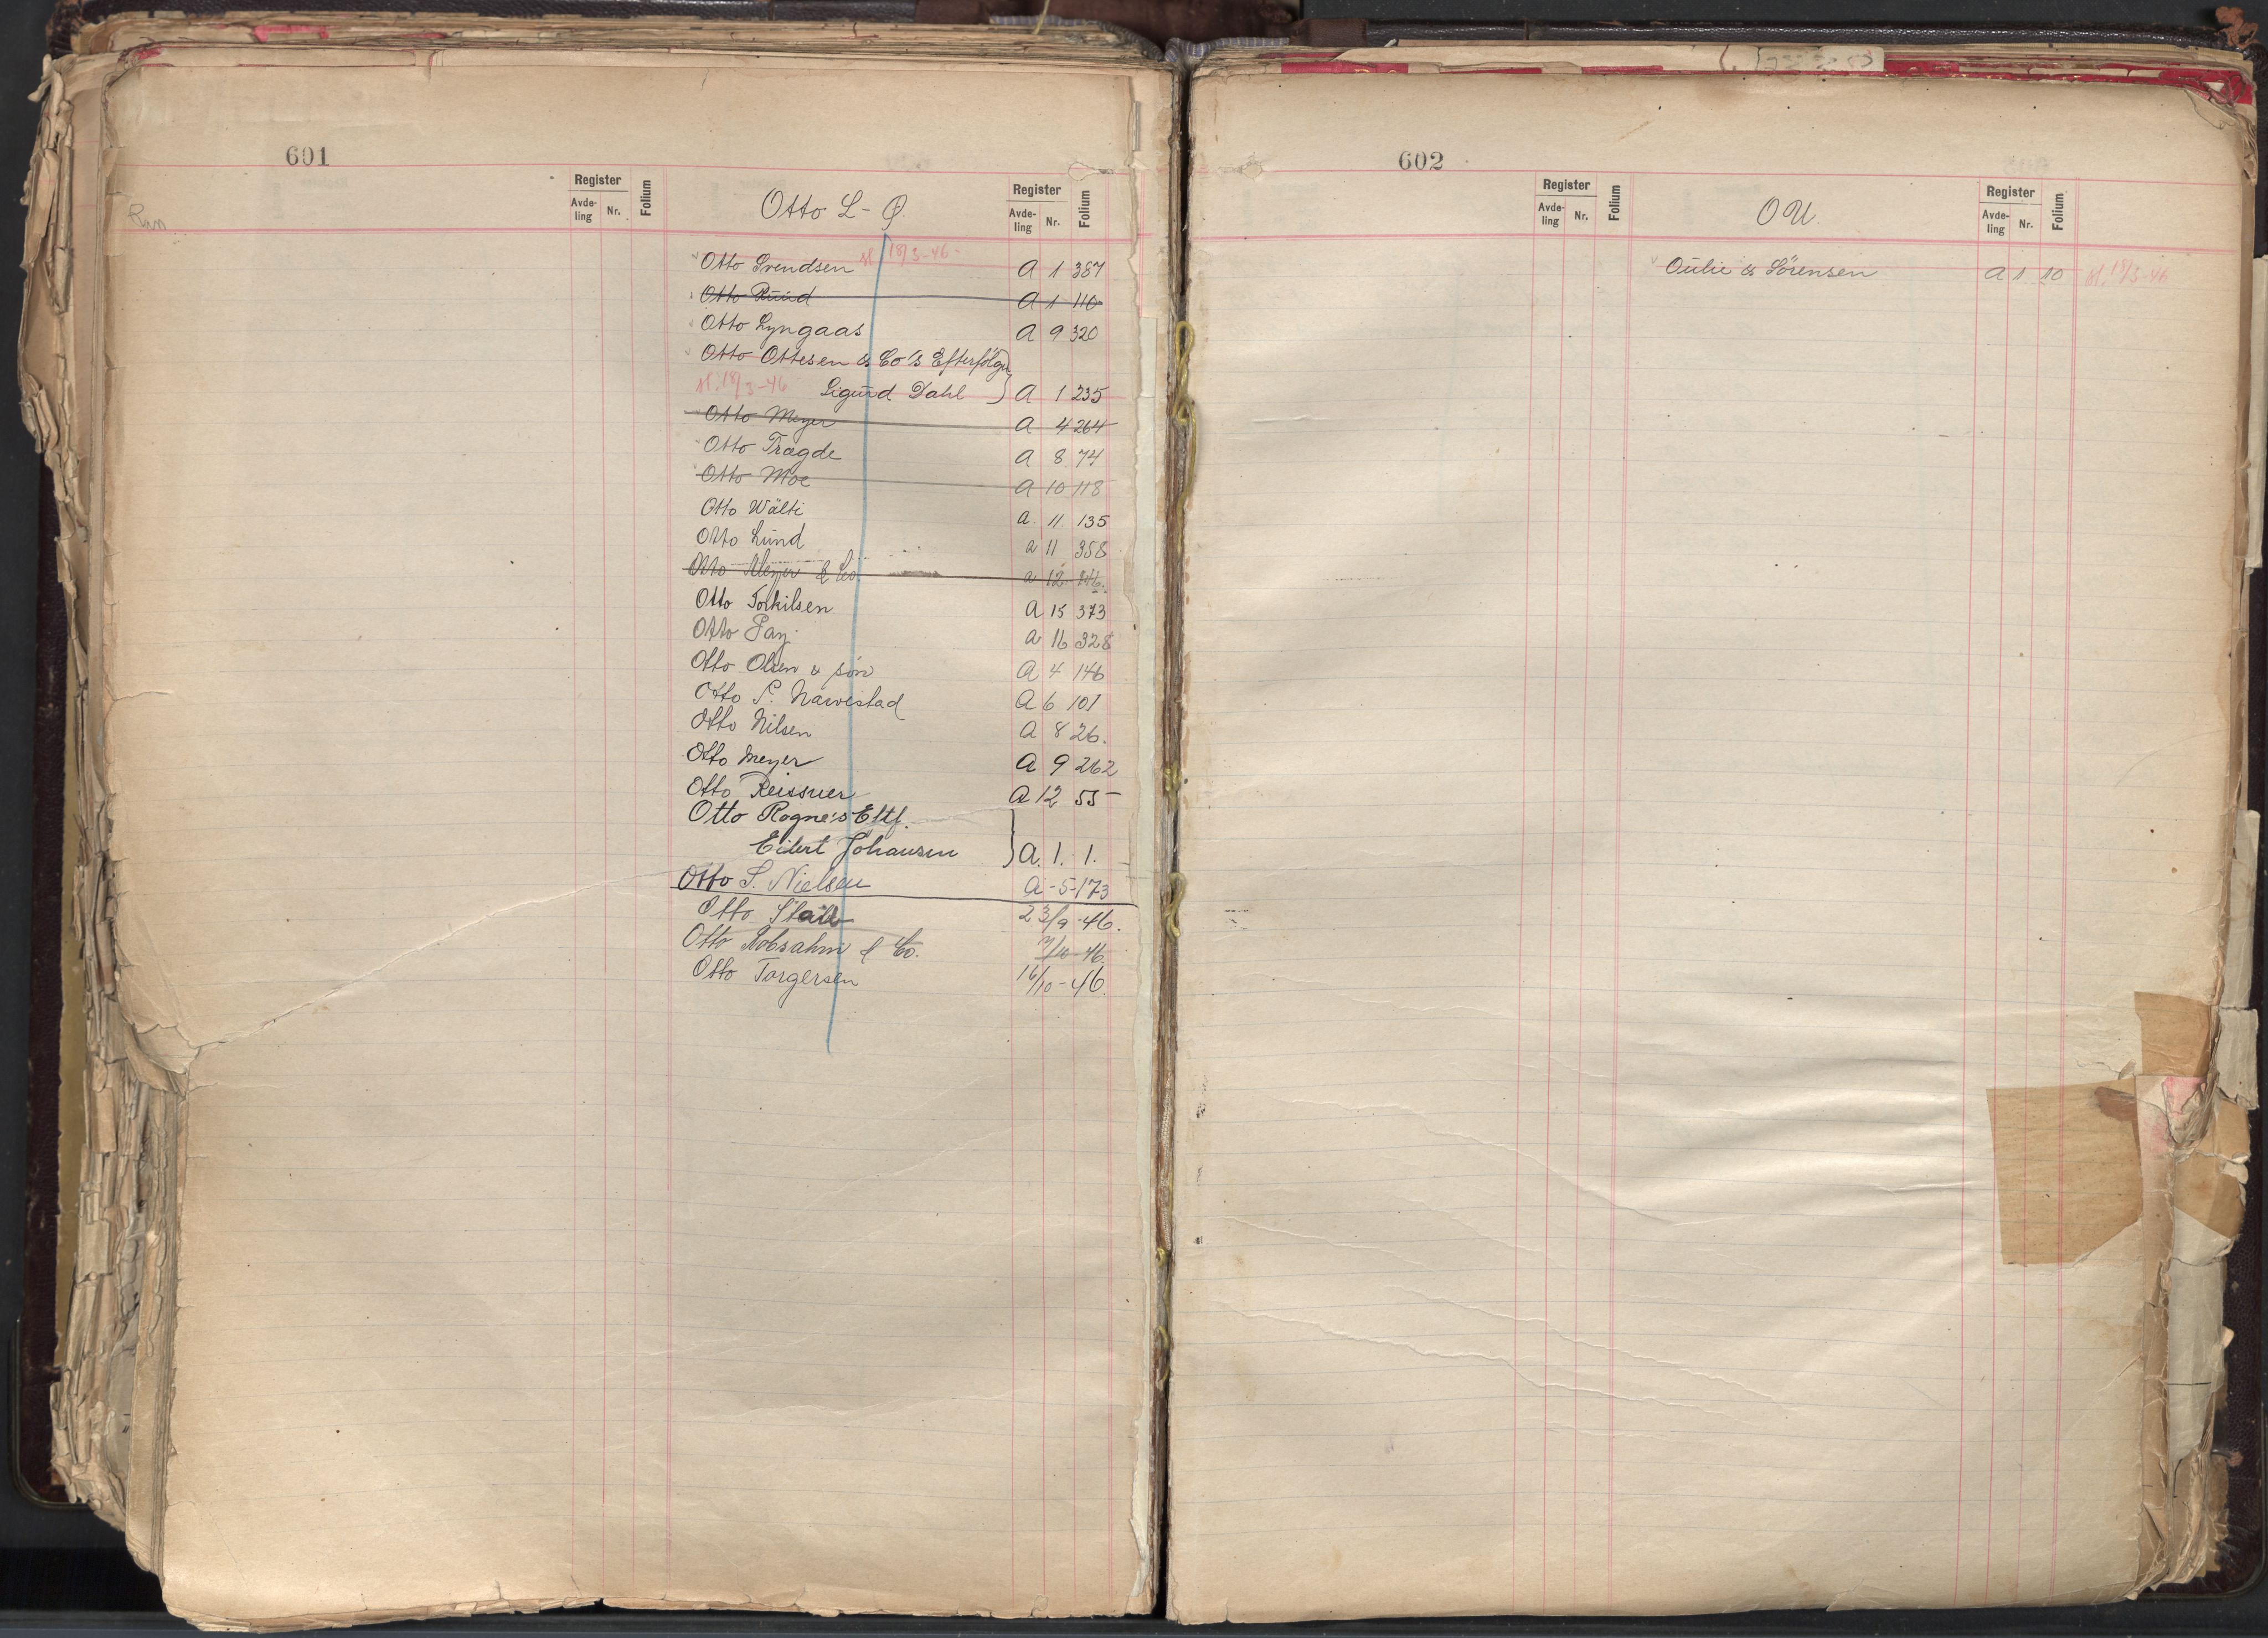 601
Register
Avde-
ling
Nr.
Folium
Otto L-Ø.
Register
Avde-
ling
Nr.
Folium
Otto Svendsen sl. 18/3-46- A 1 387
Otto Ruud A 1 110
Otto Lyngaas A 9 320
Otto Ottesen & Co's Efterfölger
sl. 18/3-46 Sigurd Dahl } A 1 235
Otto Meyer A 4 264
Otto Trægde A 8 74
Otto Moe A 10 118
Otto Wälti A. 11 135
Otto Lund a 11 358
Otto Meyer & Co. a 12 146.
Otto Torkilsen A 15 373
Otto Pay. a 16 328
Otto Olsen & søn A 4 146
Otto P. Nawestad A 6 101
Otto Nilsen A 8 26.
Otto Meyer A 9 262
Otto Reissner A 12 55
Otto Rogne's Eftf.
Eilert Johansen } A. 1. 1.
Otto S. Nielsen A-5-173
Otto 23/9-46.
Otto Robsahm & Co. /10-46.
Otto Torgersen 16/10-46.
602
Register
Avde-
ling
Nr.
Folium
OU.
Register
Avde-
ling
Nr.
Folium
Oulie & Sörensen A 1 10 sl. 18/3-46